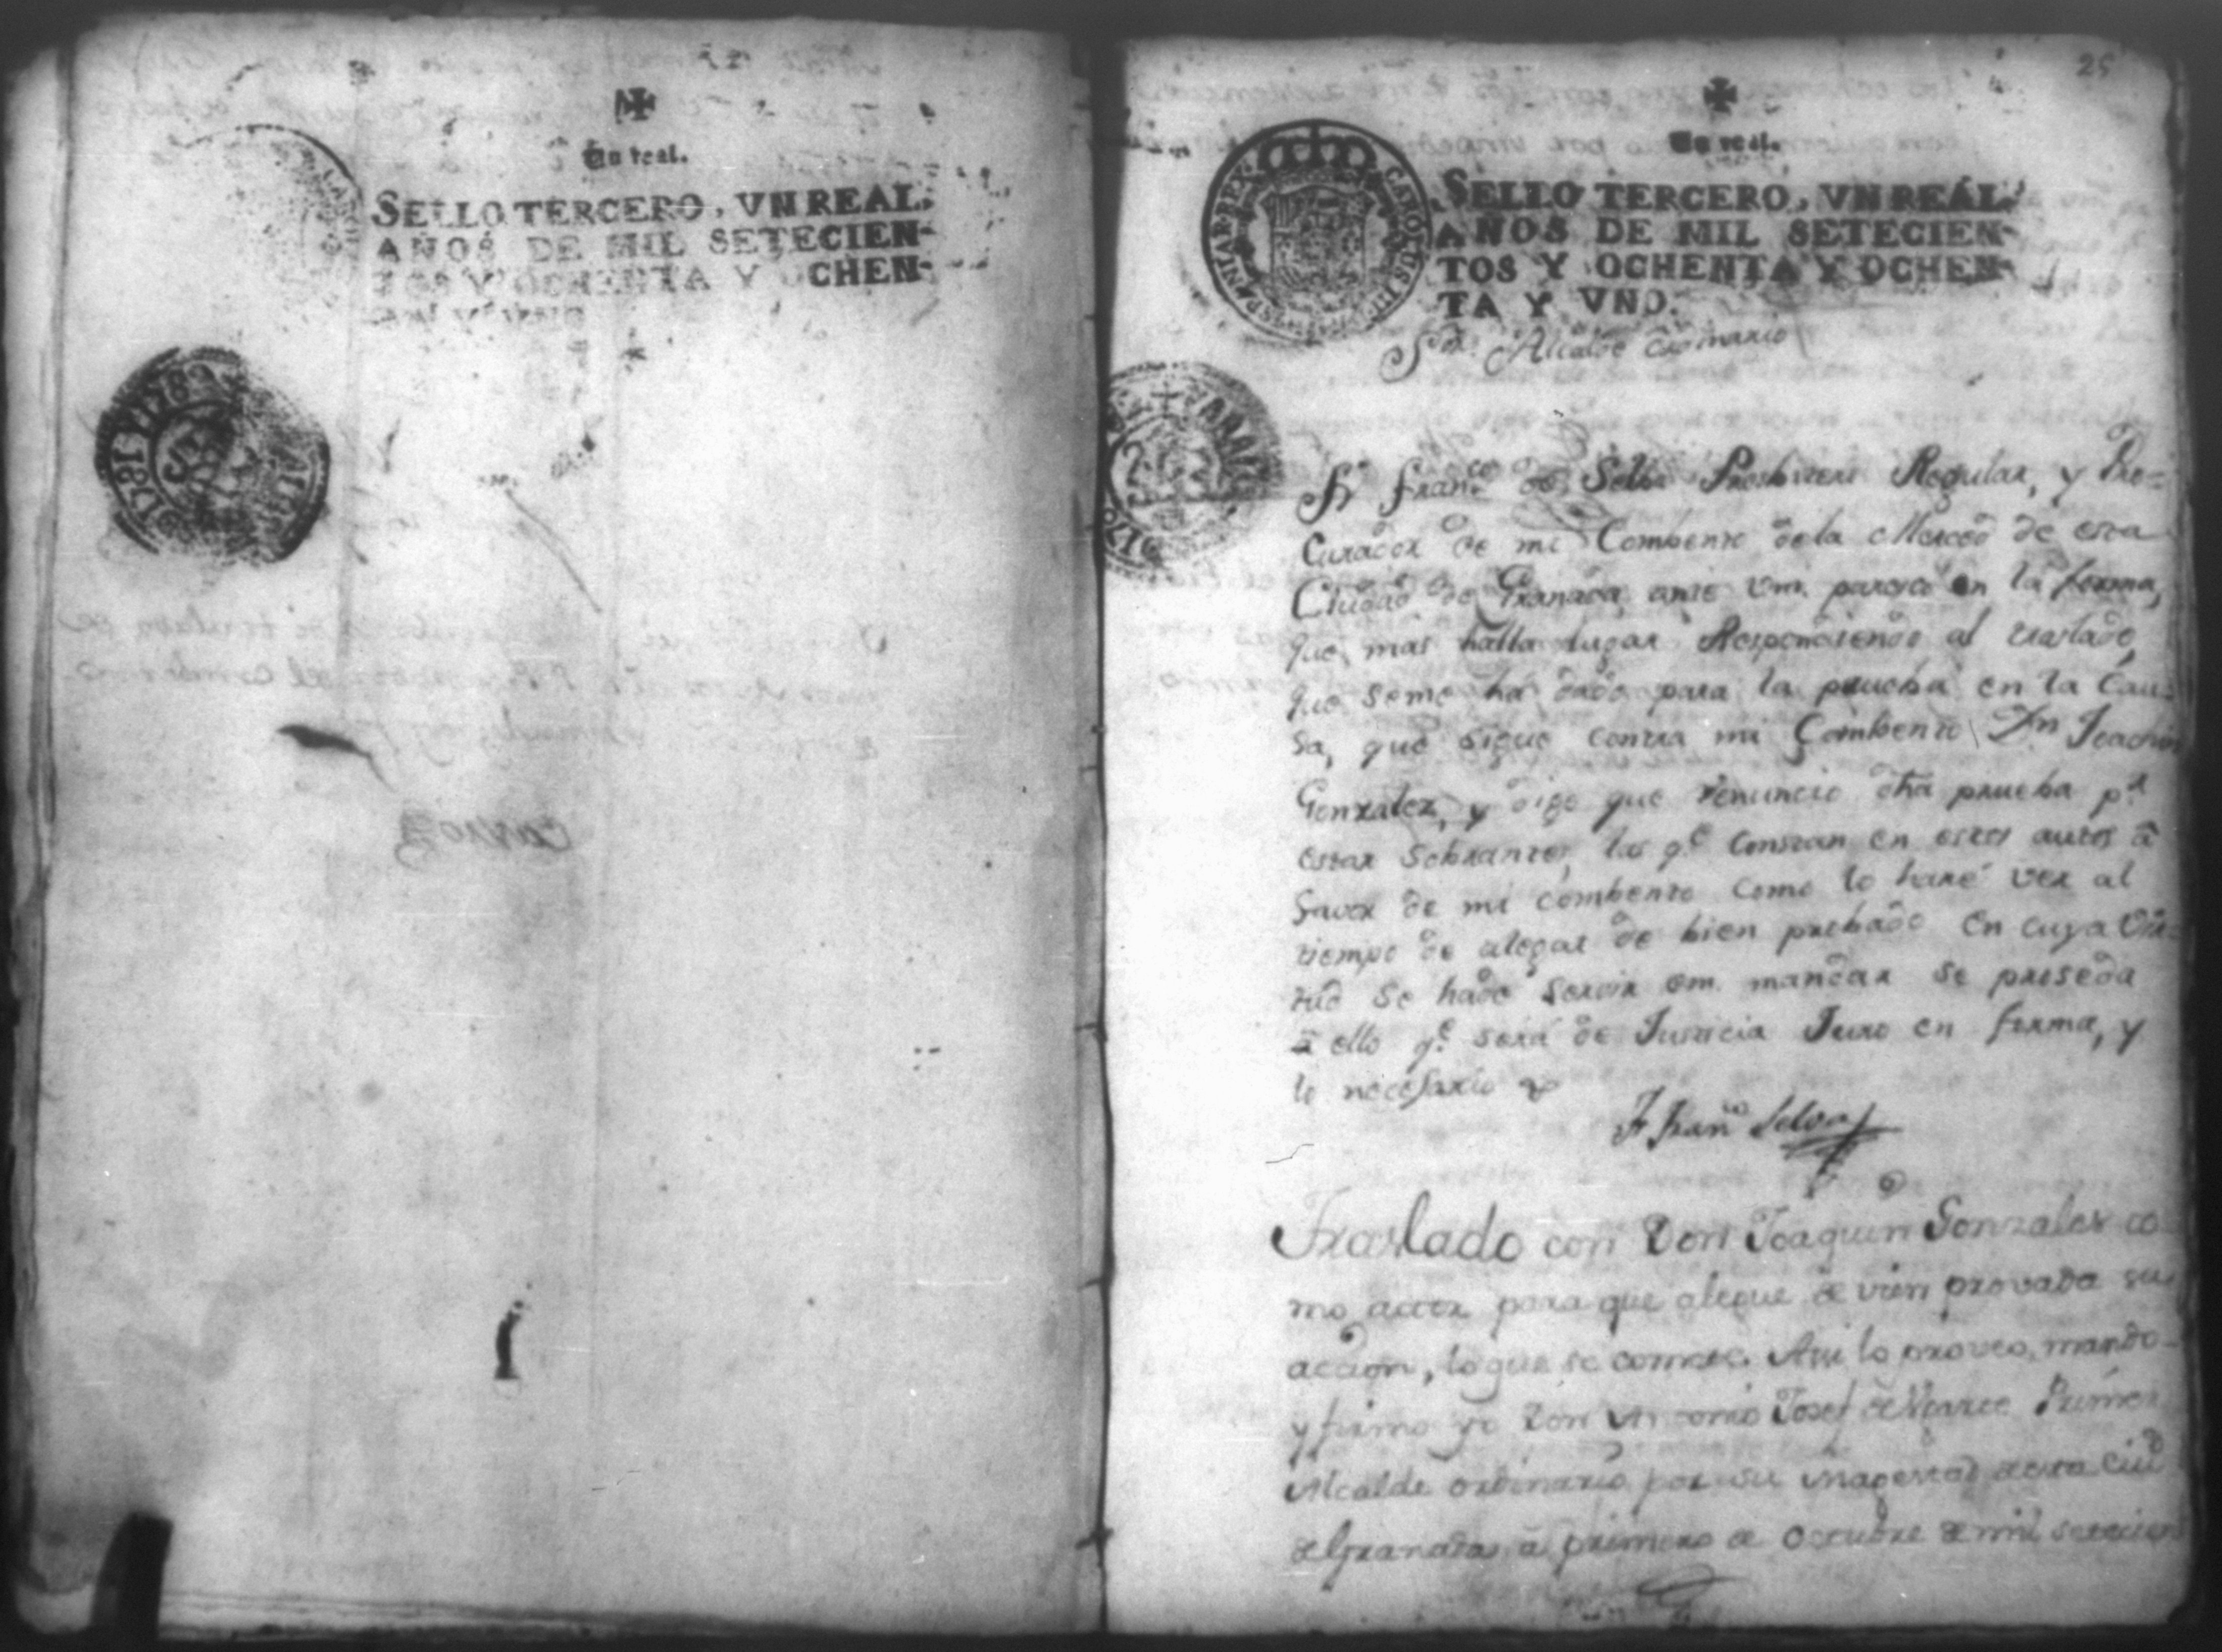 Un real.
SELLO TERCERO, VN REAL.
AÑOS DE MIL SETECIEN-
TOS Y OCHENTA Y OCHEN-
TA Y VNO
1781 Y 1782
25
Un real.
SELLO TERCERO, VN REAL.
AÑOS DE MIL SETECIEN-
TOS Y OCHENTA Y OCHEN-
TA Y VNO.
CAROLUS III
Sor. Alcalde Ordinario
Fr. Franco. de Selva Presbitero Regular, y Pro=
Curador de mi Combento dela Merced de esta
Ciudad de Granada, ante Vm. paresco en la forma,
que mas halla lugar Respondiendo al traslado,
que seme há dado para la prueba en la Cau=
sa, que sigue contra mi Combento Dn Joachin
Gonzalez, y digo que renuncio dha prueba pr.
estar Sobrantes, las qe. Constan en estos autos â
favor de mi combento como lo haré ver al
tiempo de alegar de bien probado en cuya Vir=
tud se hade servir vm. mandar se proseda
â ello qe. será de Justicia Juro en forma, y
lo necesario &
Fr Franco Selva
Traslado con Don Joaquin Gonzales co-
mo actor para que alegue de vien provada su
accion, lo que se comete. Asi lo proveo, mando
y firmo yo Don Antonio Josef de Primer
Alcalde ordinario por su Magestad de esta Ciud
de Granada, â primero de Octubre de mil setecien